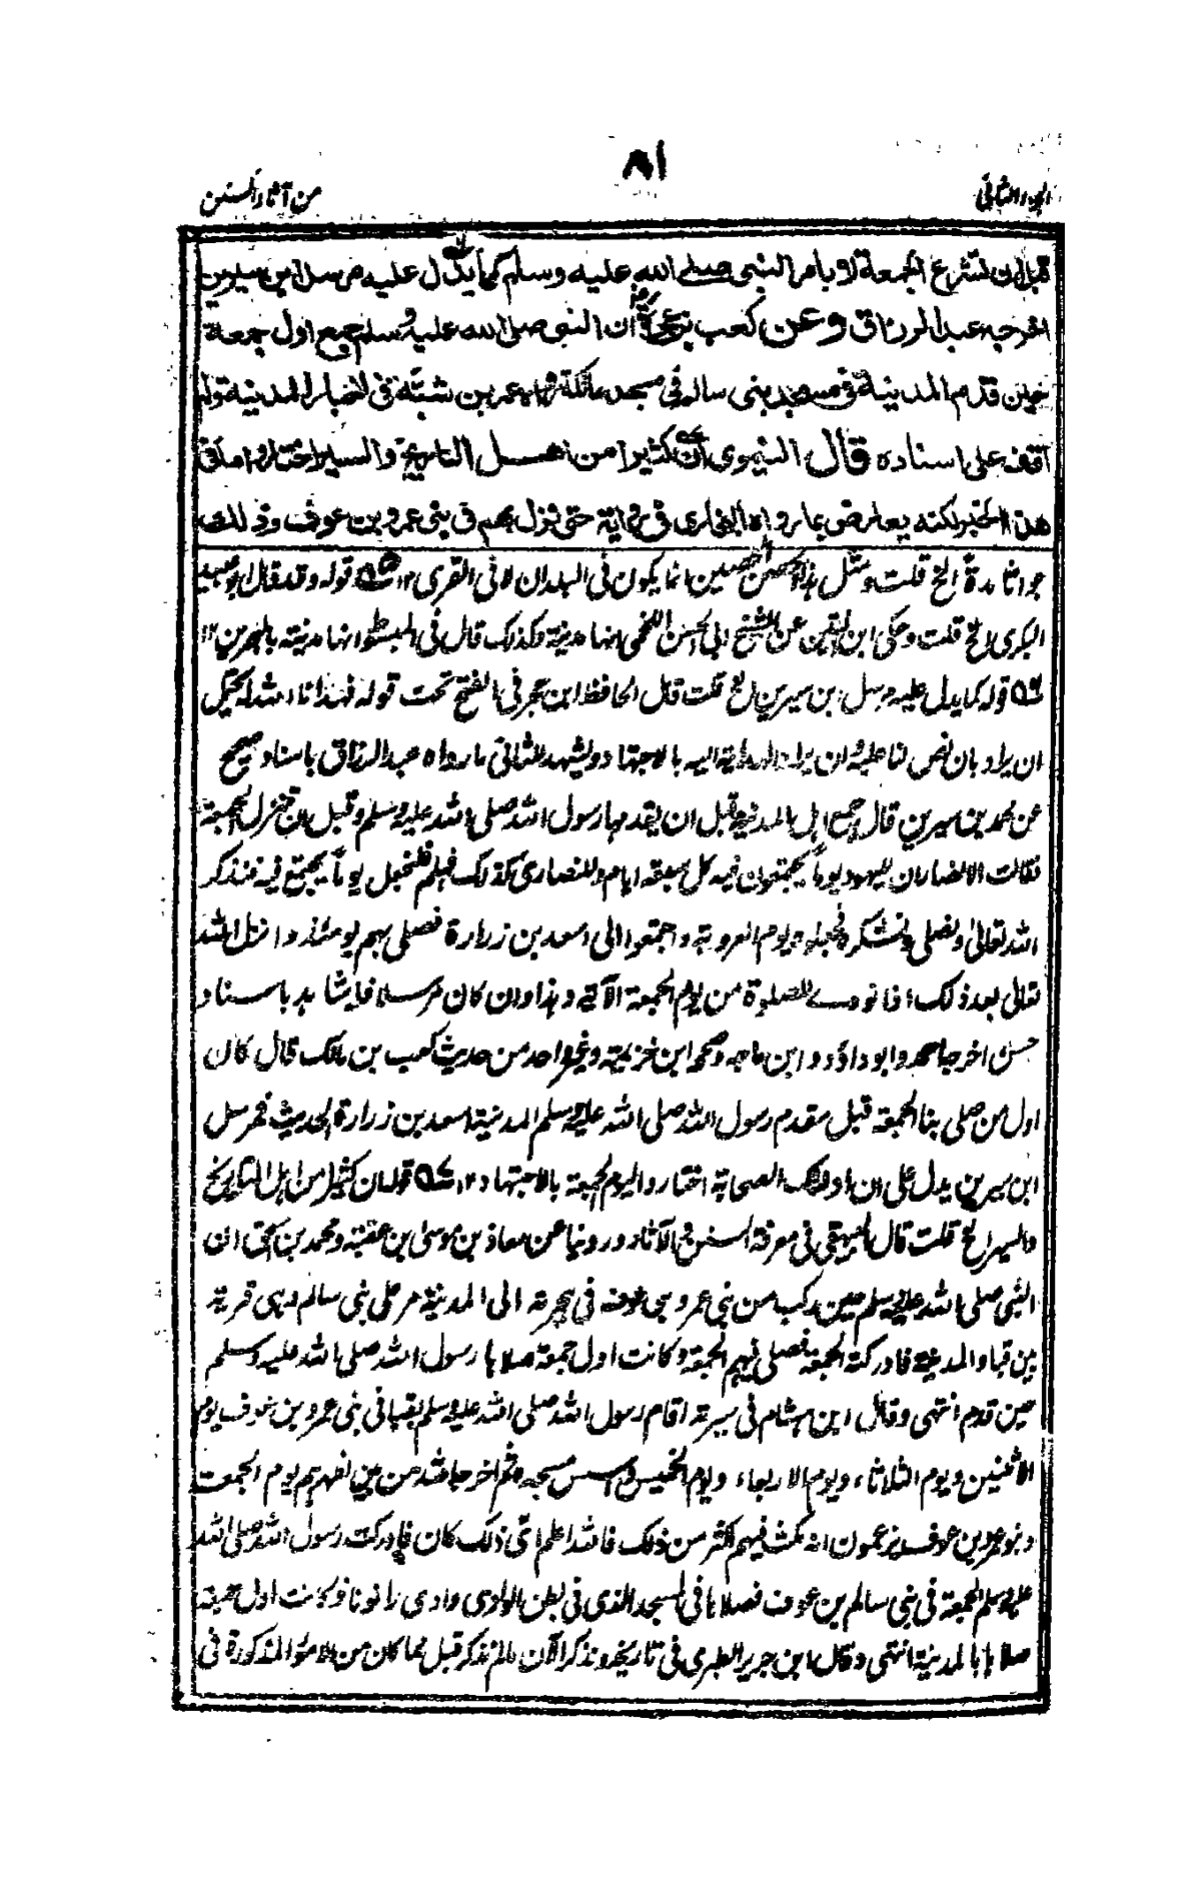 ٨١
الجزء الثانى
من آثار السنن
قبل ان تشرع الجمعة لا بامر النبى صلى الله عليه وسلم كما يدل عليه مرسل ابن سيرين
اخرجه عبد الرزاق وعن كعب بن عجرة ان النبى صلى الله عليه وسلم جمع اول جمعة
حين قدم المدينة فى مسجد بنى سالم فى مسجد عاتكة رواه عمر بن شبّة فى اخبار المدينة ولم
اقف على اسناده قال النيموى ان كثيرا من اهل التاريخ والسير اختاروا ما فى
هذا الخبر لكنه يعارض بما رواه البخارى فى رواية حتى نزل بهم فى بنى عمرو بن عوف وذلك
جواثا مدة الخ قلت ومثل هذا الحصن انما يكون فى البلدان لا فى القرى ١٢ قوله وقد قال ابو عبيد
البكرى الخ قلت وحكى ابن التين عن الشيخ ابى الحسن اللخمى انها مدينة وكذلك قال فى المبسوط انها مدينة بالبحرين ١٢
قوله كما يدل عليه مرسل بن سيرين الخ قلت قال الحافظ ابن حجر فى الفتح تحت قوله فهدانا الله له يحتمل
ان يراد بان نص لنا عليه وان يراد الهداية اليه بالاجتهاد ويشهد للثانى ما رواه عبد الرزاق باسناد صحيح
عن محمد بن سيرين قال جمع اهل المدينة قبل ان يقدمها رسول الله صلى الله عليه وسلم وقبل ان تنزل الجمعة
فقالت الانصار ان لليهود يوماً يجتمعون فيه كل سبعة ايام وللنصارى كذلك فهلم فلنجعل يوماً نجتمع فيه فنذكر
الله تعالى ونصلى ونشكره فجعلوه يوم العروبة واجتمعوا الى اسعد بن زرارة فصلى بهم يومئذ وانزل الله
تعالى بعد ذلك اذا نودى للصلوة من يوم الجمعة الآتى وهذا وان كان مرسلا فله شاهد باسناد
حسن اخرجه احمد وابو داؤد وابن ماجه وصححه ابن خزيمة وغير واحد من حديث كعب بن مالك قال كان
اول من صلى بنا الجمعة قبل مقدم رسول الله صلى الله عليه وسلم المدينة اسعد بن زرارة الحديث فمرسل
ابن سيرين يدل على ان اولئك الصحابة اختاروا يوم الجمعة بالاجتهاد ١٢ قوله ان كثيرا من اهل التاريخ
والسير الخ قلت قال البيهقى فى معرفة السنن والآثار وروينا عن معاذ بن موسى بن عقبة ومحمد بن اسحق ان
النبى صلى الله عليه وسلم حين ركب من بنى عمرو بن عوف فى هجرته الى المدينة مر على بنى سالم وهى قرية
بين قبا والمدينة فادركته الجمعة فصلى فيهم الجمعة وكانت اول جمعة صلاها رسول الله صلى الله عليه وسلم
حين قدم انتهى وقال ابن هشام فى سيرته اقام رسول الله صلى الله عليه وسلم بقبا فى بنى عمرو بن عوف يوم
الاثنين ويوم الثلاثاء ويوم الاربعاء ويوم الخميس واسس مسجده ثم اخرجه الله من بين اظهرهم يوم الجمعة
وبنو عمرو بن عوف يزعمون انه مكث فيهم اكثر من ذلك فالله اعلم اى ذلك كان فادركت رسول الله صلى الله
عليه وسلم الجمعة فى بنى سالم بن عوف فصلاها فى المسجد الذى فى بطن الوادى وادى رانونا وكانت اول جمعة
صلاها بالمدينة انتهى وقال ابن جرير الطبرى فى تاريخه ونذكر الآن مالم نذكر قبل مما كان من الامور المذكورة فى